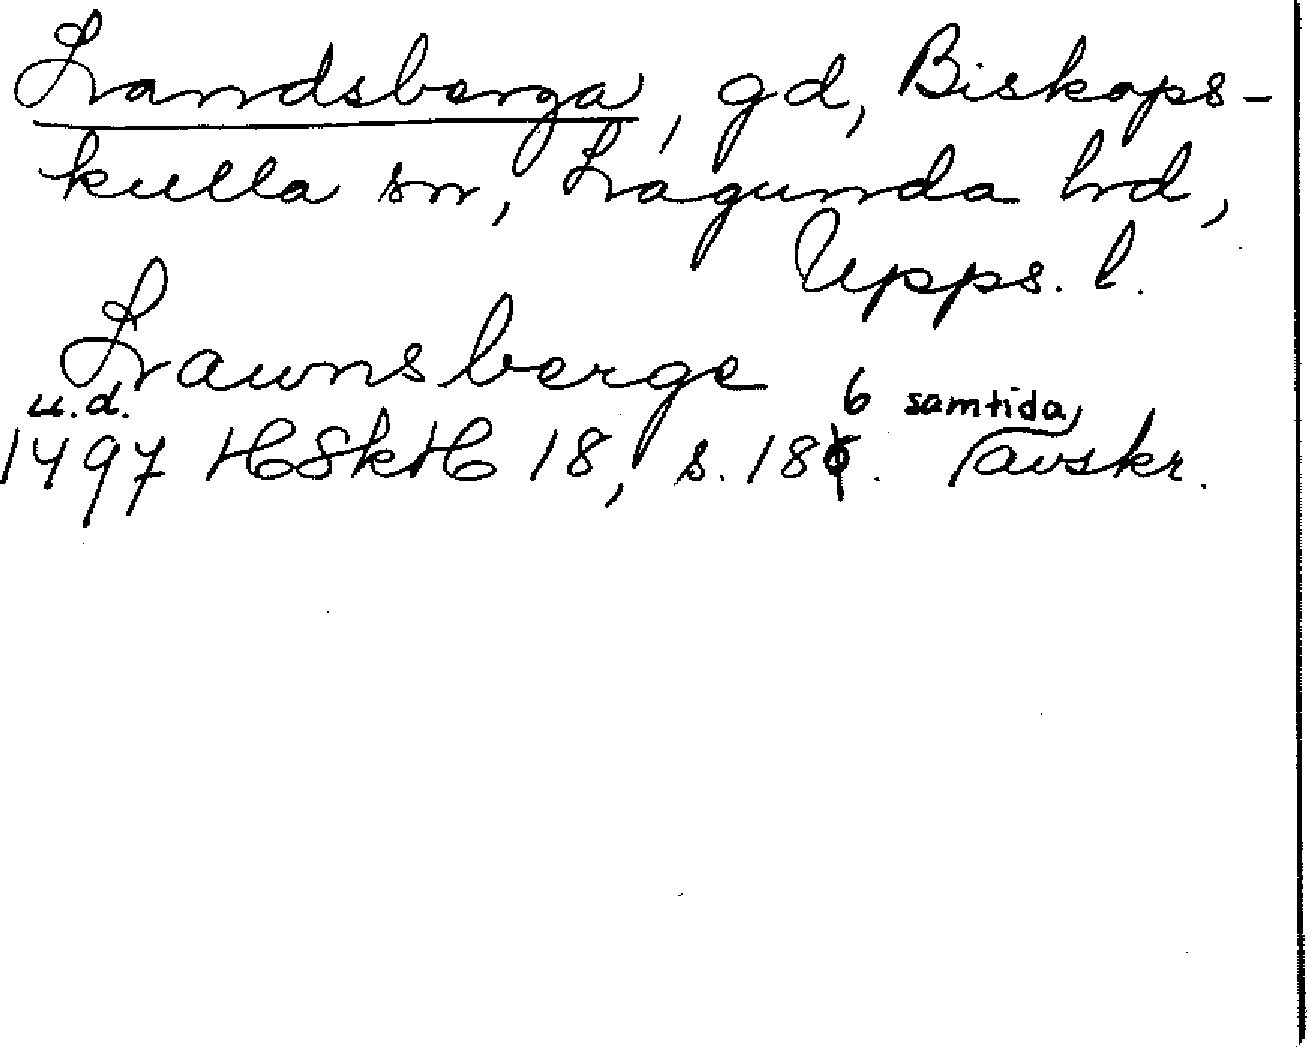 Landsberga, gd, Biskops-
kulla sn, Lagunda hd,
Upps. l.
Lawnsberge
u.d.
1497 HSkH 18, s. 186. samtida avskr.